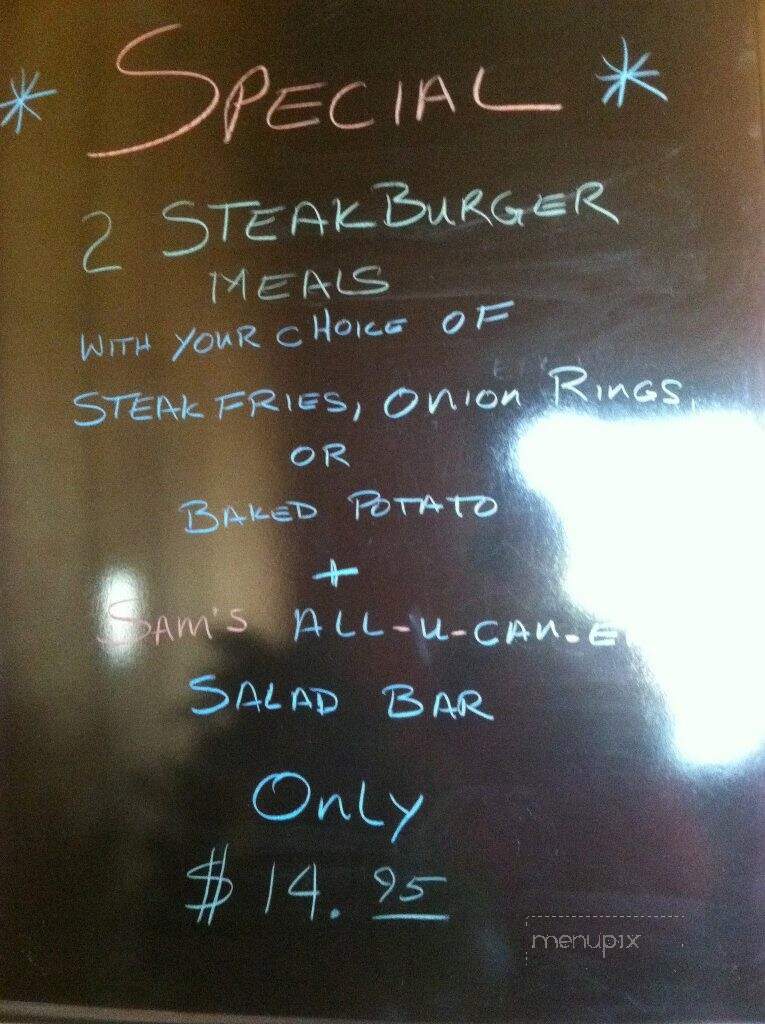 * SPECIAL *
2 STEAKBURGER
MEALS
WITH YOUR CHOICE OF
STEAK FRIES, ONION RINGS,
OR
BAKED POTATO
+
SAM'S ALL-U-CAN-E
SALAD BAR
ONLY
$14.95
menupix